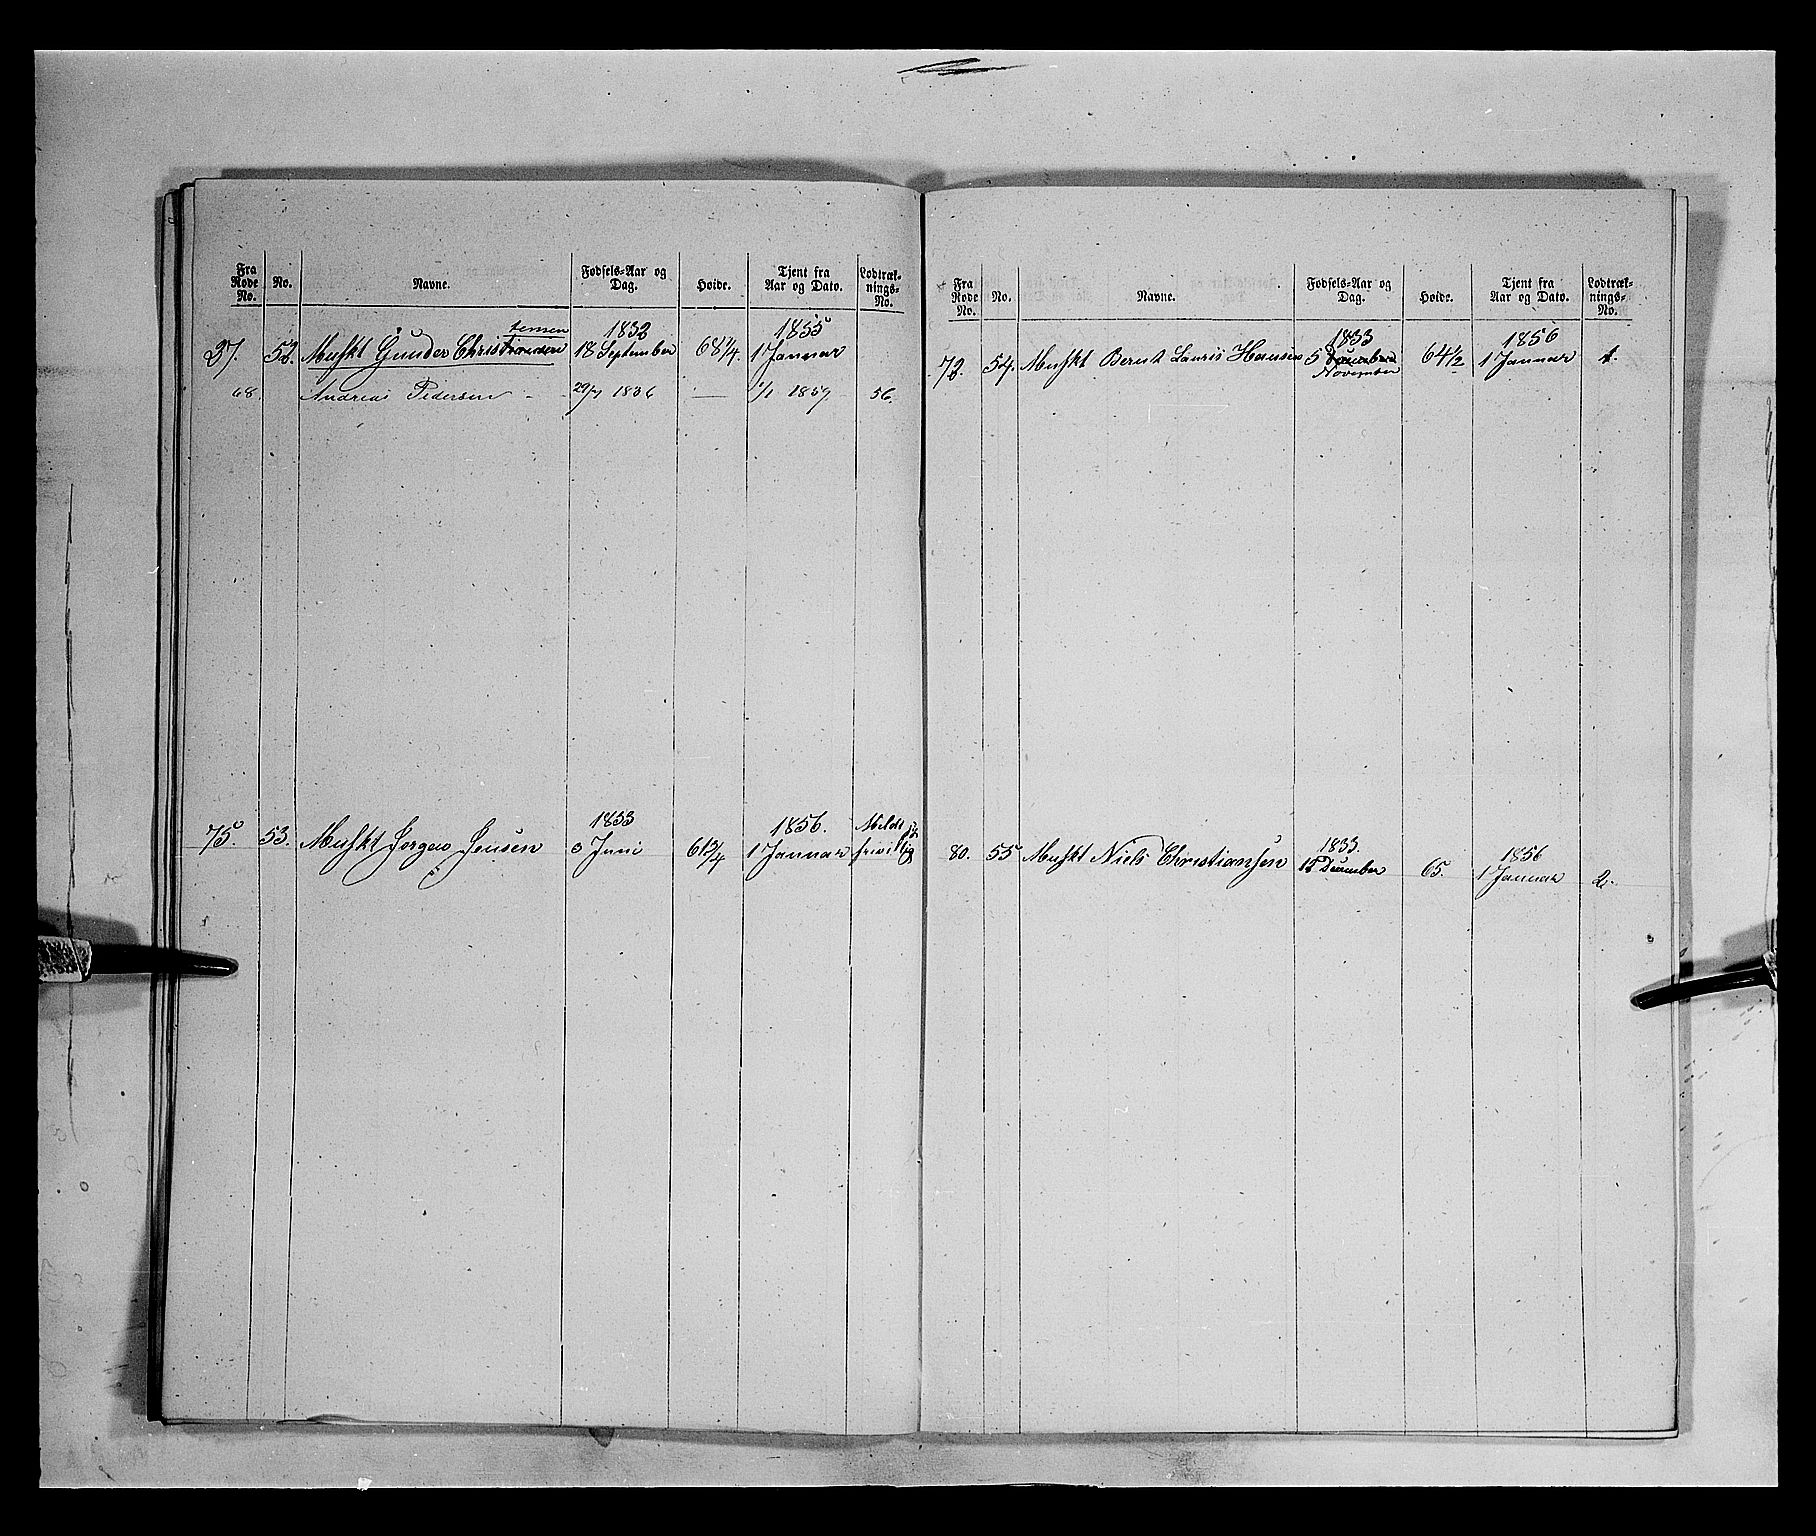 Fra Rode No. No. Navne. Fødsels-Aar og Dag. Høide. Tjent fra Aar og Dato. Lodtræk-nings-No.
tensen 1832 1855
37. 52. Muskt Gunder Christiansen 18 September 68¼. 1 Januar
68. Andreas Pedersen 29/7 1836 — 1/1 1857 56.
1833 1856. Meldt sig
75. 53. Muskt Jørgen Jensen 3 Juni 61¾ 1 Januar frivillig
Fra Rode No. No. Navne. Fødsels-Aar og Dag. Høide. Tjent fra Aar og Dato. Lodtræk-nings-No.
1833 1856
72. 54. Muskt Bernt Lauris Hansen 5 December 64½ 1 Januar 1.
November
1833. 1856
80. 55 Muskt Niels Christiansen 15 December 65. 1 Januar 2.